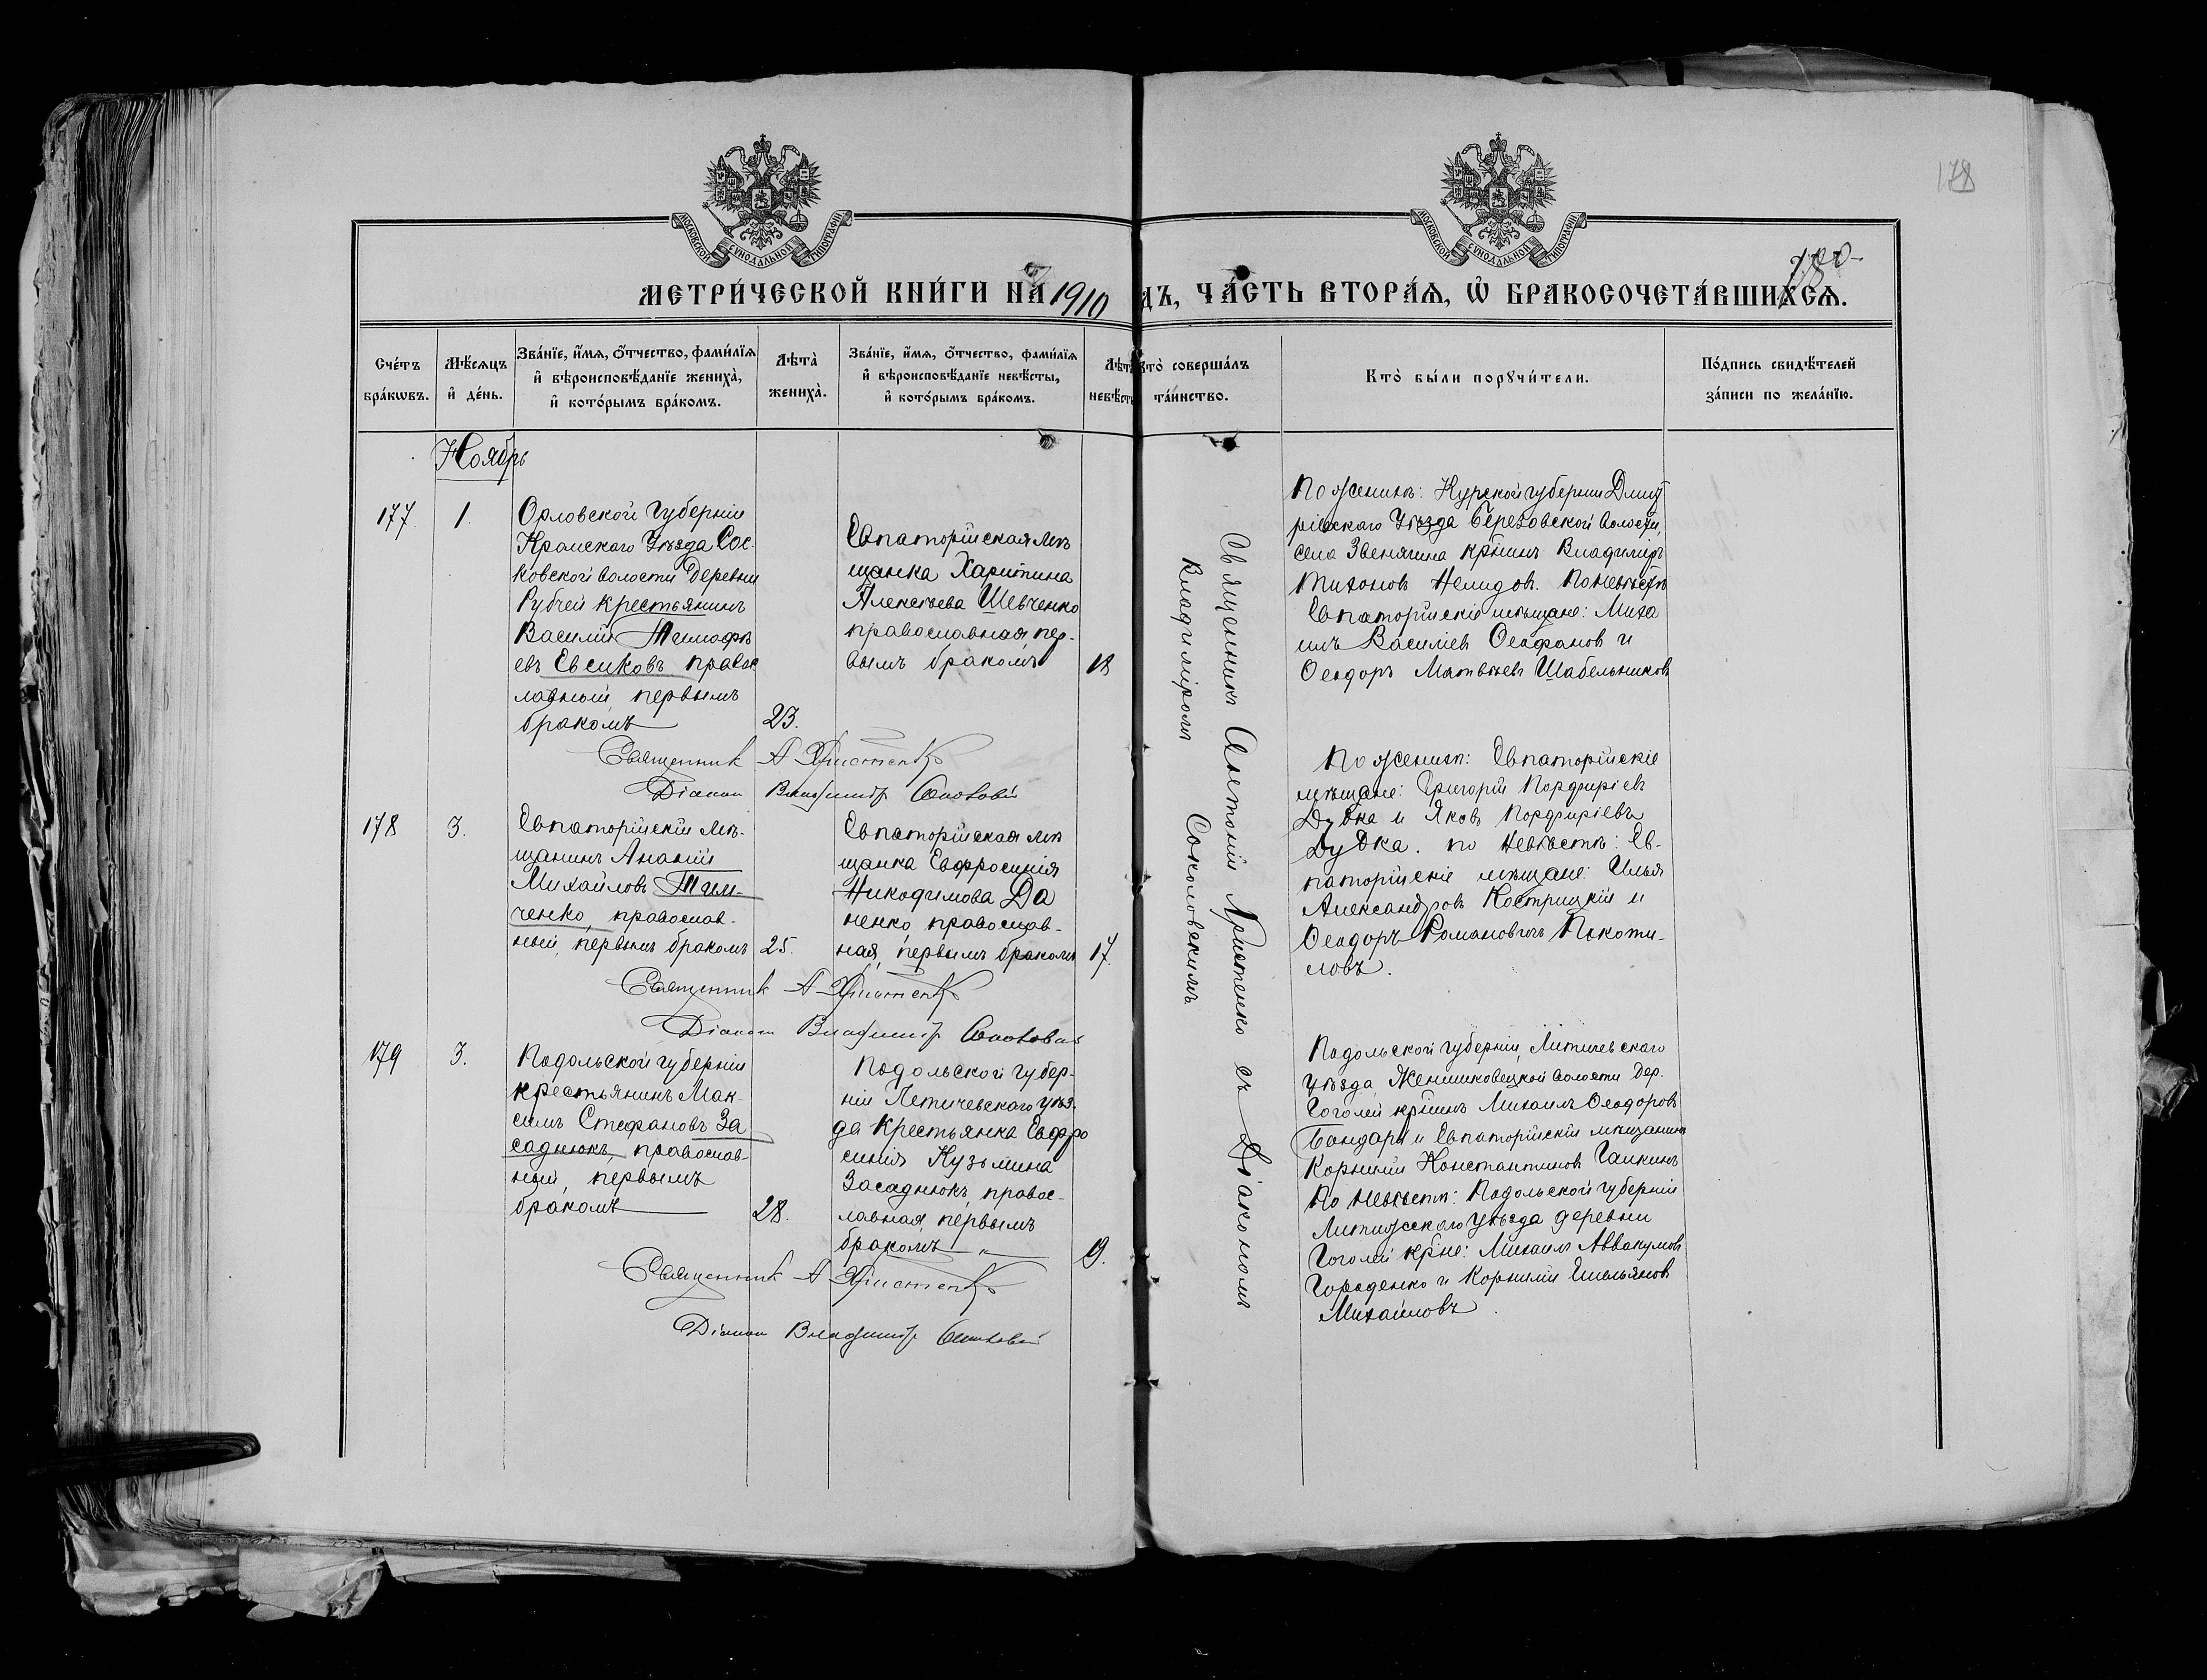 178
180
МОСКОВСКОЙ СѴНОДАЛЬНОЙ ТИПОГРАФІИ
МОСКОВСКОЙ СѴНОДАЛЬНОЙ ТИПОГРАФІИ
МЕТРИ́ЧЕСКОЙ КНИ́ГИ НА 1910 ДЪ, ЧА́СТЬ ВТОРА́Ѧ, Ѽ БРАКОСОЧЕТА́ВШИХСѦ.
Сче́тъ бра́кѡвъ.
Мѣ́сѧцъ и҆ де́нь.
Зва́нїе, и҆́мѧ, ѻ҆́тчество, фами́лїѧ и҆ вѣроисповѣ́данїе жениха̀, и҆ кото́рымъ бра́комъ.
Лѣта̀ жениха̀.
Зва́нїе, и҆́мѧ, ѻ҆́тчество, фами́лїѧ и҆ вѣроисповѣ́данїе невѣ́сты, и҆ кото́рымъ бра́комъ.
Лѣта невѣсты
Кто̀ соверша́лъ та́инство.
Кто̀ бы́ли порꙋчи́тели.
По́дпись свидѣ́телей за́писи по жела́нїю.
Ноябрь
177.
1.
Орловской губерніи
Кромскаго Уѣзда Сос-
ковской волости деревни
Рубчей крестьянинъ
Василій Тимофѣ
евъ Евсиковъ правос
лавный, первымъ
бракомъ
23.
Евпаторійская мѣ
щанка Харитина
Алексѣева Шевченко
православная пер-
вымъ бракомъ
18
Священникъ Антоній Христенко съ Діакономъ
Владиміромъ Соколовскимъ
По женихѣ: Курской губерніи Дмит
ріевскаго Уѣзда Березовской волости,
села Звенячина кр̃нинъ Владимиръ
Тихоновъ Нелидовъ. По невѣстѣ
Евпаторійскіе мѣщане: Миха
илъ Василіевъ Ѳеофановъ и
Ѳеодоръ Матвѣевъ Шабельниковъ
Священникъ А Христенко
Діаконъ Владиміръ Соколовскій
178
3.
Евпаторійскій мѣ-
щанинъ Ананій
Михайловъ Тим-
ченко, православ-
ный, первымъ бракомъ
25.
Евпаторійская мѣ
щанка Евфросинія
Никодимова Да
ненко, православ-
ная, первымъ бракомъ
17.
По женихѣ: Евпаторійскіе
мѣщане: Григорій Порфиріевъ
Дудка и Яковъ Порфиріевъ
Дудка. по невѣстѣ: Ев-
паторійскіе мѣщане: Илья
Александровъ Кострицкій и
Ѳеодоръ Романовичъ Покоти-
ловъ.
Священникъ А Христенко
Діаконъ Владиміръ Соколовскій
179
3.
Подольской губерніи
крестьянинъ Мак-
симъ Стефановъ За
саднюкъ, православ-
ный, первымъ
бракомъ
28.
Подольской губер-
ніи Летичевскаго уѣз-
да крестьянка Евфро
синія Кузьмина
Засаднюкъ, правос-
лавная, первымъ
бракомъ
19.
Подольской губерніи, Литичевскаго
уѣзда, Женишковецкой волости дер.
Гоголей кр̃нинъ Михаилъ Ѳеодоровъ
Бондарь и Евпаторійскій мѣщанинъ
Корнилій Константиновъ Галкинъ
По невѣстѣ: Подольской губерніи
Литичевскаго уѣзда деревни
Гоголей кр̃не: Михаилъ Аввакумовъ
Городенко и Корнилій Емельяновъ
Михайловъ.
Священникъ А Христенко
Діаконъ Владиміръ Соколовскій